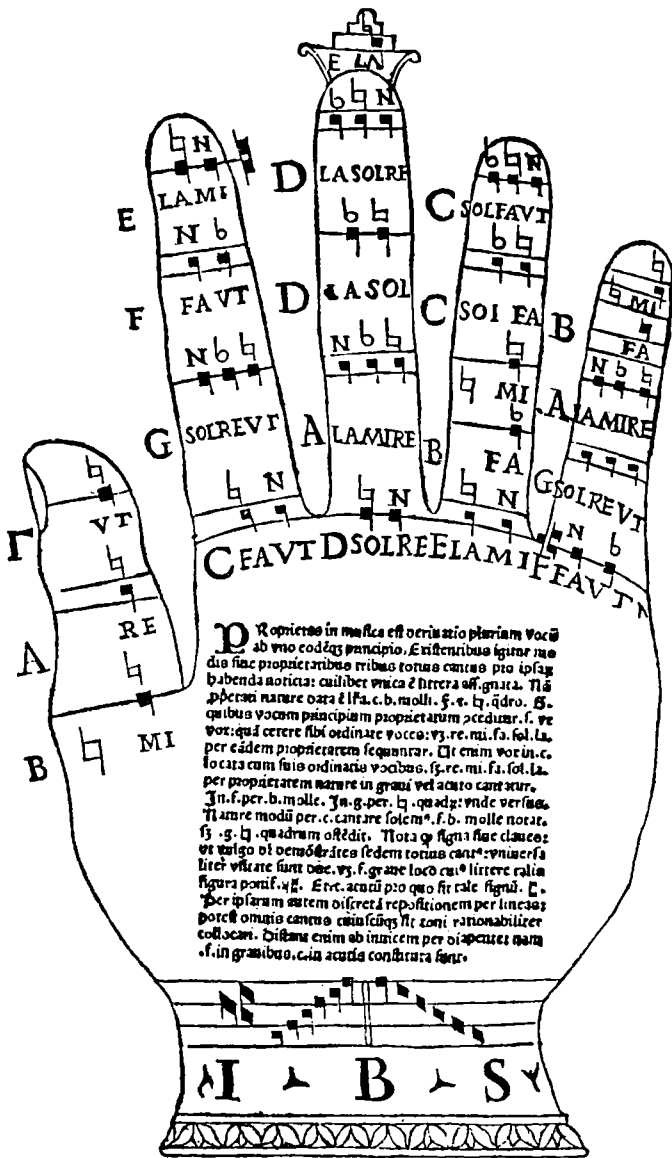 E LA
♮ N
b ♮ N
b ♮ N
♮
E LAMI
D LASOLRE
C SOLFAUT
♮ MI
N b
b ♮
b ♮
FA
F FAVT
D LASOL
C SOl FA
B
N b ♮
N b b
N b ♮
♮ MI
G SOLREVT
A LAMIRE
B FA
A LAMIRE
b
♮
Γ VT
♮ N
♮ N
♮ N
G SOLREVT
N b
C FAVT D SOLRE E LAMI F FAVT
♮
A RE
♮
B ♮ MI
PRoprietas in musica est derivatio plurium vocū
ab vno eodēqꝫ principio. Existentibus igitur mo
dis sine proprietatibus tribus totus cantus pro ipsaꝝ
habenda noticia: cuilibet vnica ē littera assignata. Nā
ꝓpietati nature data ē lr̄a .c. b. molli .f. ⁊ .♮. q̄dro .G.
quibus vocum principium proprietatum proceditur .s. vt
vox: quā cetere sibi ordinate voces: vꝫ. re. mi. fa. sol. la.
per eādem proprietatem sequuntur. Ut enim vox in .c.
locata cum suis ordinatis vocibus .sꝫ. re. mi. fa. sol. la.
per proprietatem nature in graui vel acuto cantatur.
In .f. per .b. molle. In .g. per .♮. quadꝝ: vnde versus.
Nature modū per .c. cantare solemꝰ .f. b. molle notat.
sꝫ .g. ♮. quadrum oſtēdit. Nota ꝙ signa siue claues:
vt vulgo vt demōstrātes sedem totius cantꝰ: vniuersa
liter vsitate sunt due. vꝫ. f. graue loco cuiꝰ littere talis
figura ponit. Et .c. acutū pro quo fit tale signū.
Per ipsarum autem discretā repositionem per lineas:
potest omnis cantus cuiuscūqꝫ sit toni rationabiliter
collocari. Distant enim ab inuicem per diapentes nam
.f. in grauibus .c. in acutis constituta sunt.
I B S